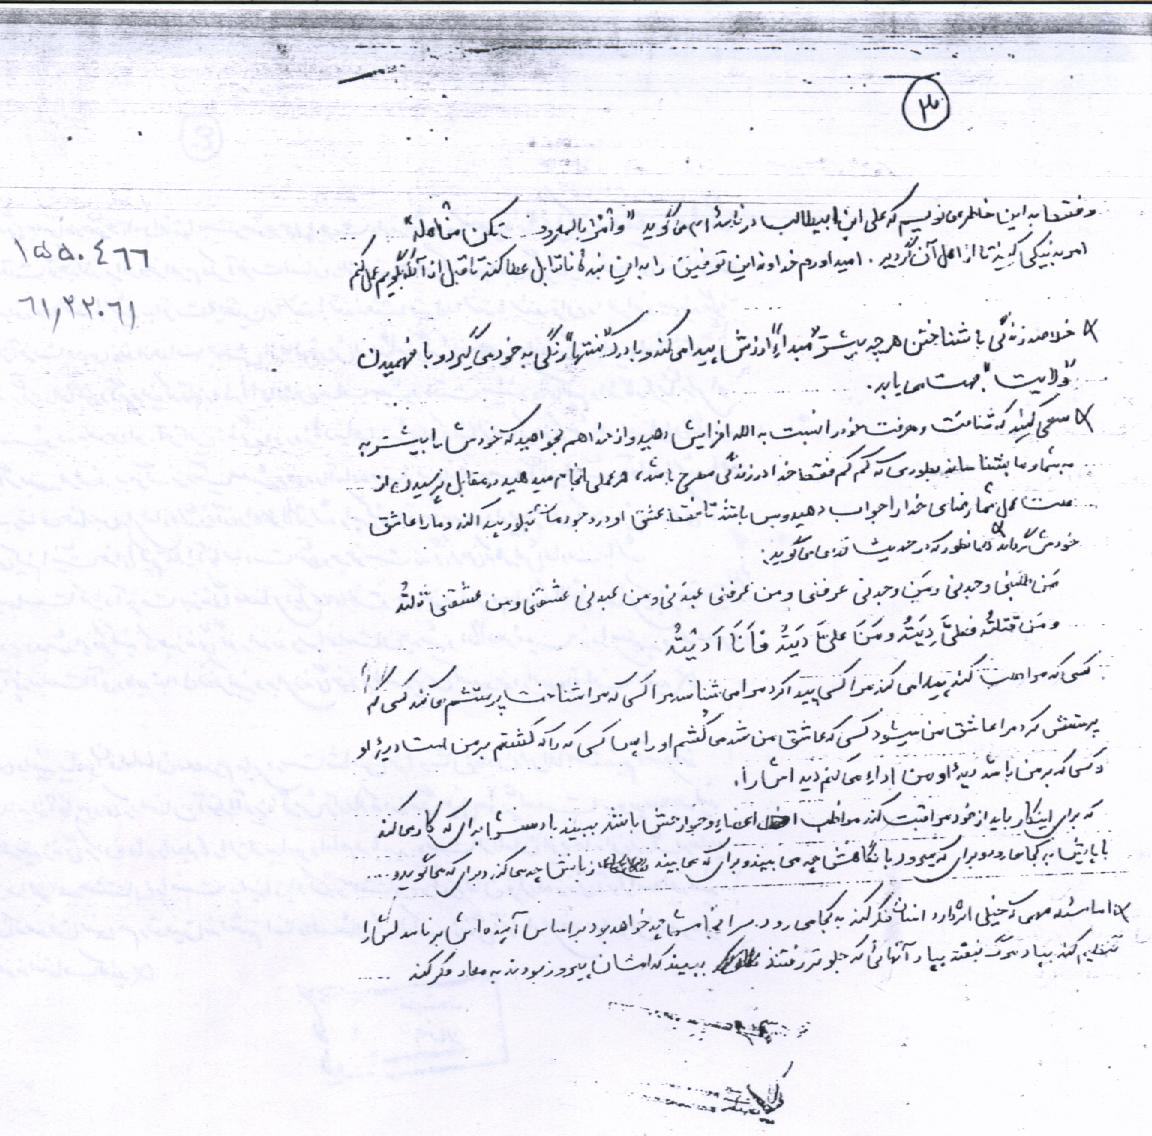 ۳
و فقط به این خاطر می نویسم که علی ابن ابیطالب در نامه ام می گوید "و أمر بالمعروف تکن من أهله"
امر به نیکی کنید تا از اهل آن گردید. امیدوارم خداوند این توفیق را به این بنده ناقابل عطا کند تا قبل از آنکه بگویم عمل کنم
۱۵۵۰۴۶۶
۶۱٫۲۲۰۶۱
خلاصه زندگی با شناختن هر چه بیشتر ارزش پیدا می کند و با درک رنگی به خود می گیرد و با فهمیدن
"ولایت" جهت می یابد.
سعی کنید که شناخت و معرفت خود را نسبت به الله افزایش دهید و از خدا هم بخواهید که خودش را بیشتر به
به شما بشناساند بطوری که کم کم فقط خدا در زندگی مطرح باشد، هر عملی انجام میدهید در مقابل پرسیدن از
علت عمل شما رضای خدا را جواب دهید و بس باشد تا عشق او در وجود شما را عاشق
خودش گرداند همانطور که در حدیث قدسی می گوید:
مَن طلبنی وجدنی و مَن وجدنی عرفنی و من عرفنی عبدنی و من عبدنی عشقنی و من عشقنی قتلتُه
و مَن قتلتُه فعلیَّ دِیَتُه و مَن علیَّ دیَتُه فأنَا دیَتُه
کسی که مرا طلب کند پیدا می کند مرا کسی که پیدا کرد مرا می شناسد مرا کسی که مرا شناخت پرستشم می کند کسی که
پرستش کرد مرا عاشق من میشود کسی که عاشق من شد می کُشم او را پس کسی که را که کشتم بر من است دیهٔ او
و کسی که بر من باشد دیهٔ او من اداء می کنم دیه اش را.
که برای اینکار باید از خود مراقبت کند مواظب اعضاء و جوارحش باشد ببیند با دستش برای که کار می کند
با پایش به کجا می رود برای که می رود با نگاهش چه می بیند و برای که می بیند زبانش چه می گوید و برای که می گوید و
اما مسئله مهمی که خیلی اثر دارد انسان فکر کند به کجا می رود و سرانجامش چه خواهد بود بر اساس آن آینده اش برنامه اش را
تنظیم کند بیاد مرگ بیفتد بیاد آنهائی که جلوتر رفتند ببیند که امشان پیروز بودند به معاد فکر کند